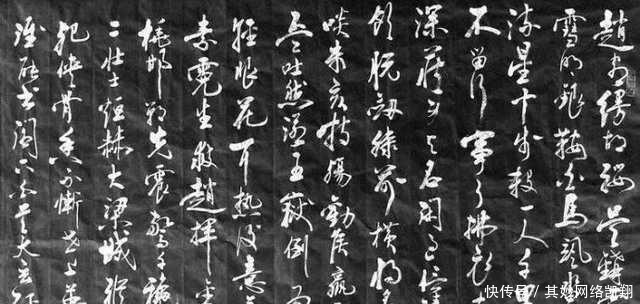 趙客縵胡纓吳鉤
雪明銀鞍白馬颯
流星十步殺一人千
不留行事了拂衣
深藏身與名閑過信
飲脫劍膝前橫將
啖朱亥持觴勸侯嬴
吐然諾五嶽倒為
輕眼花耳熱後意
素霓生救趙揮
槌邯鄲先震驚千
二壯士烜赫大梁城縱
死俠骨香不慚世上英
誰能書閣下白首太玄經
快传号 / 其妙网络凯翔